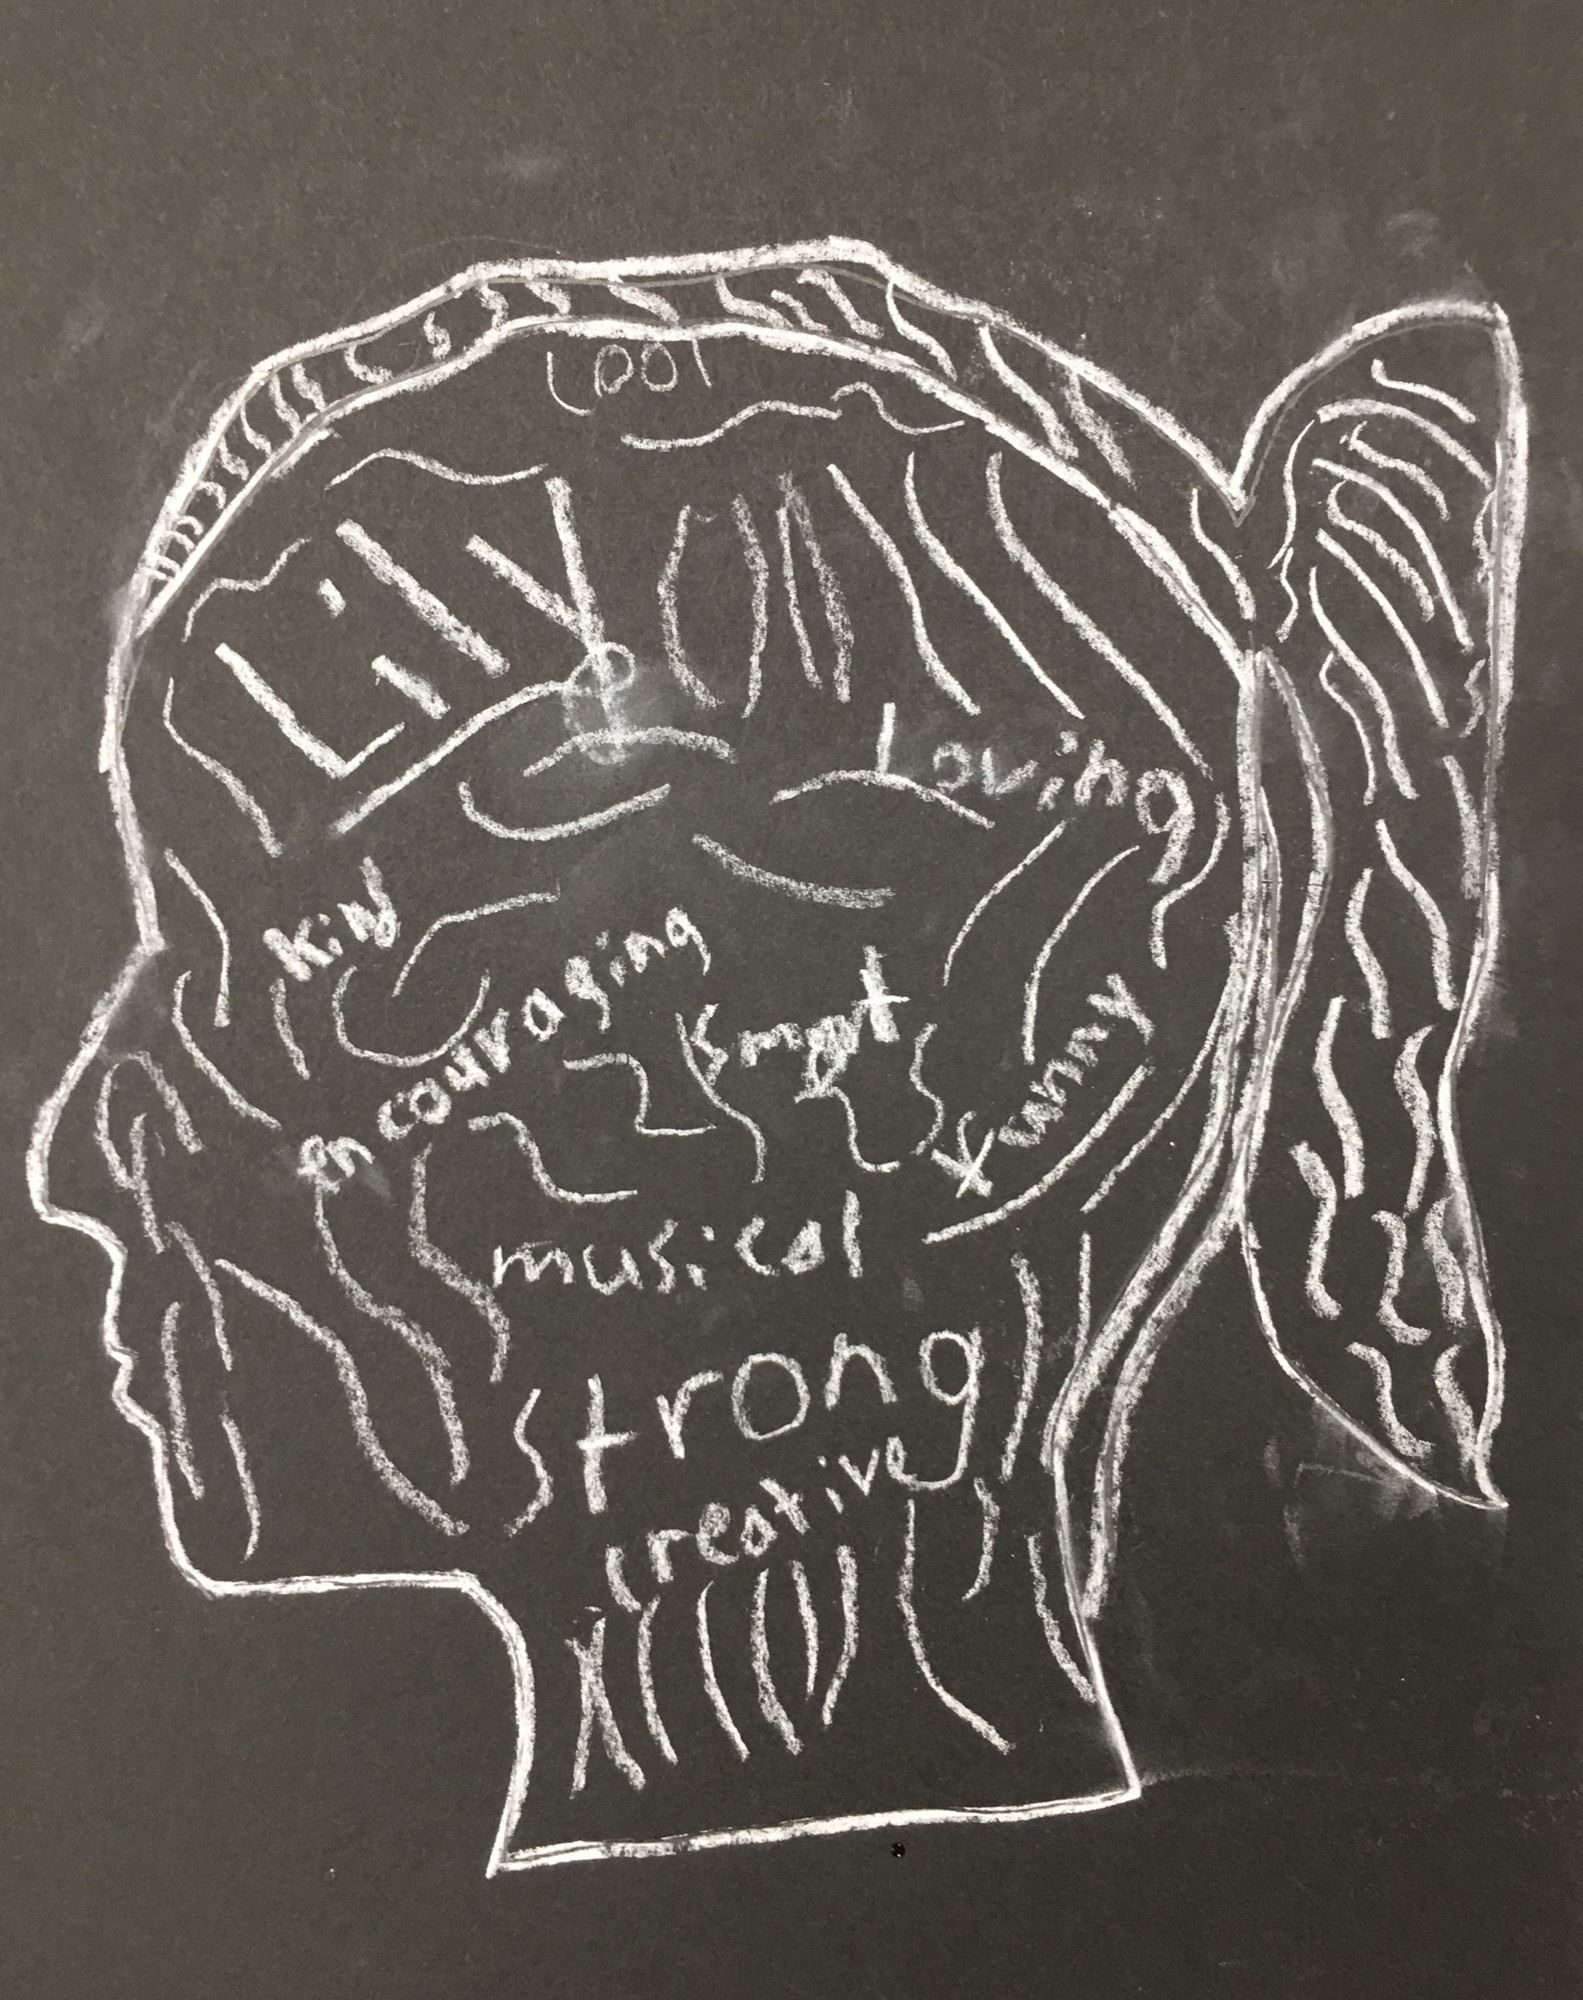 cool
Lily
Loving
Kind
encouraging
smart
funny
musical
strong
creative